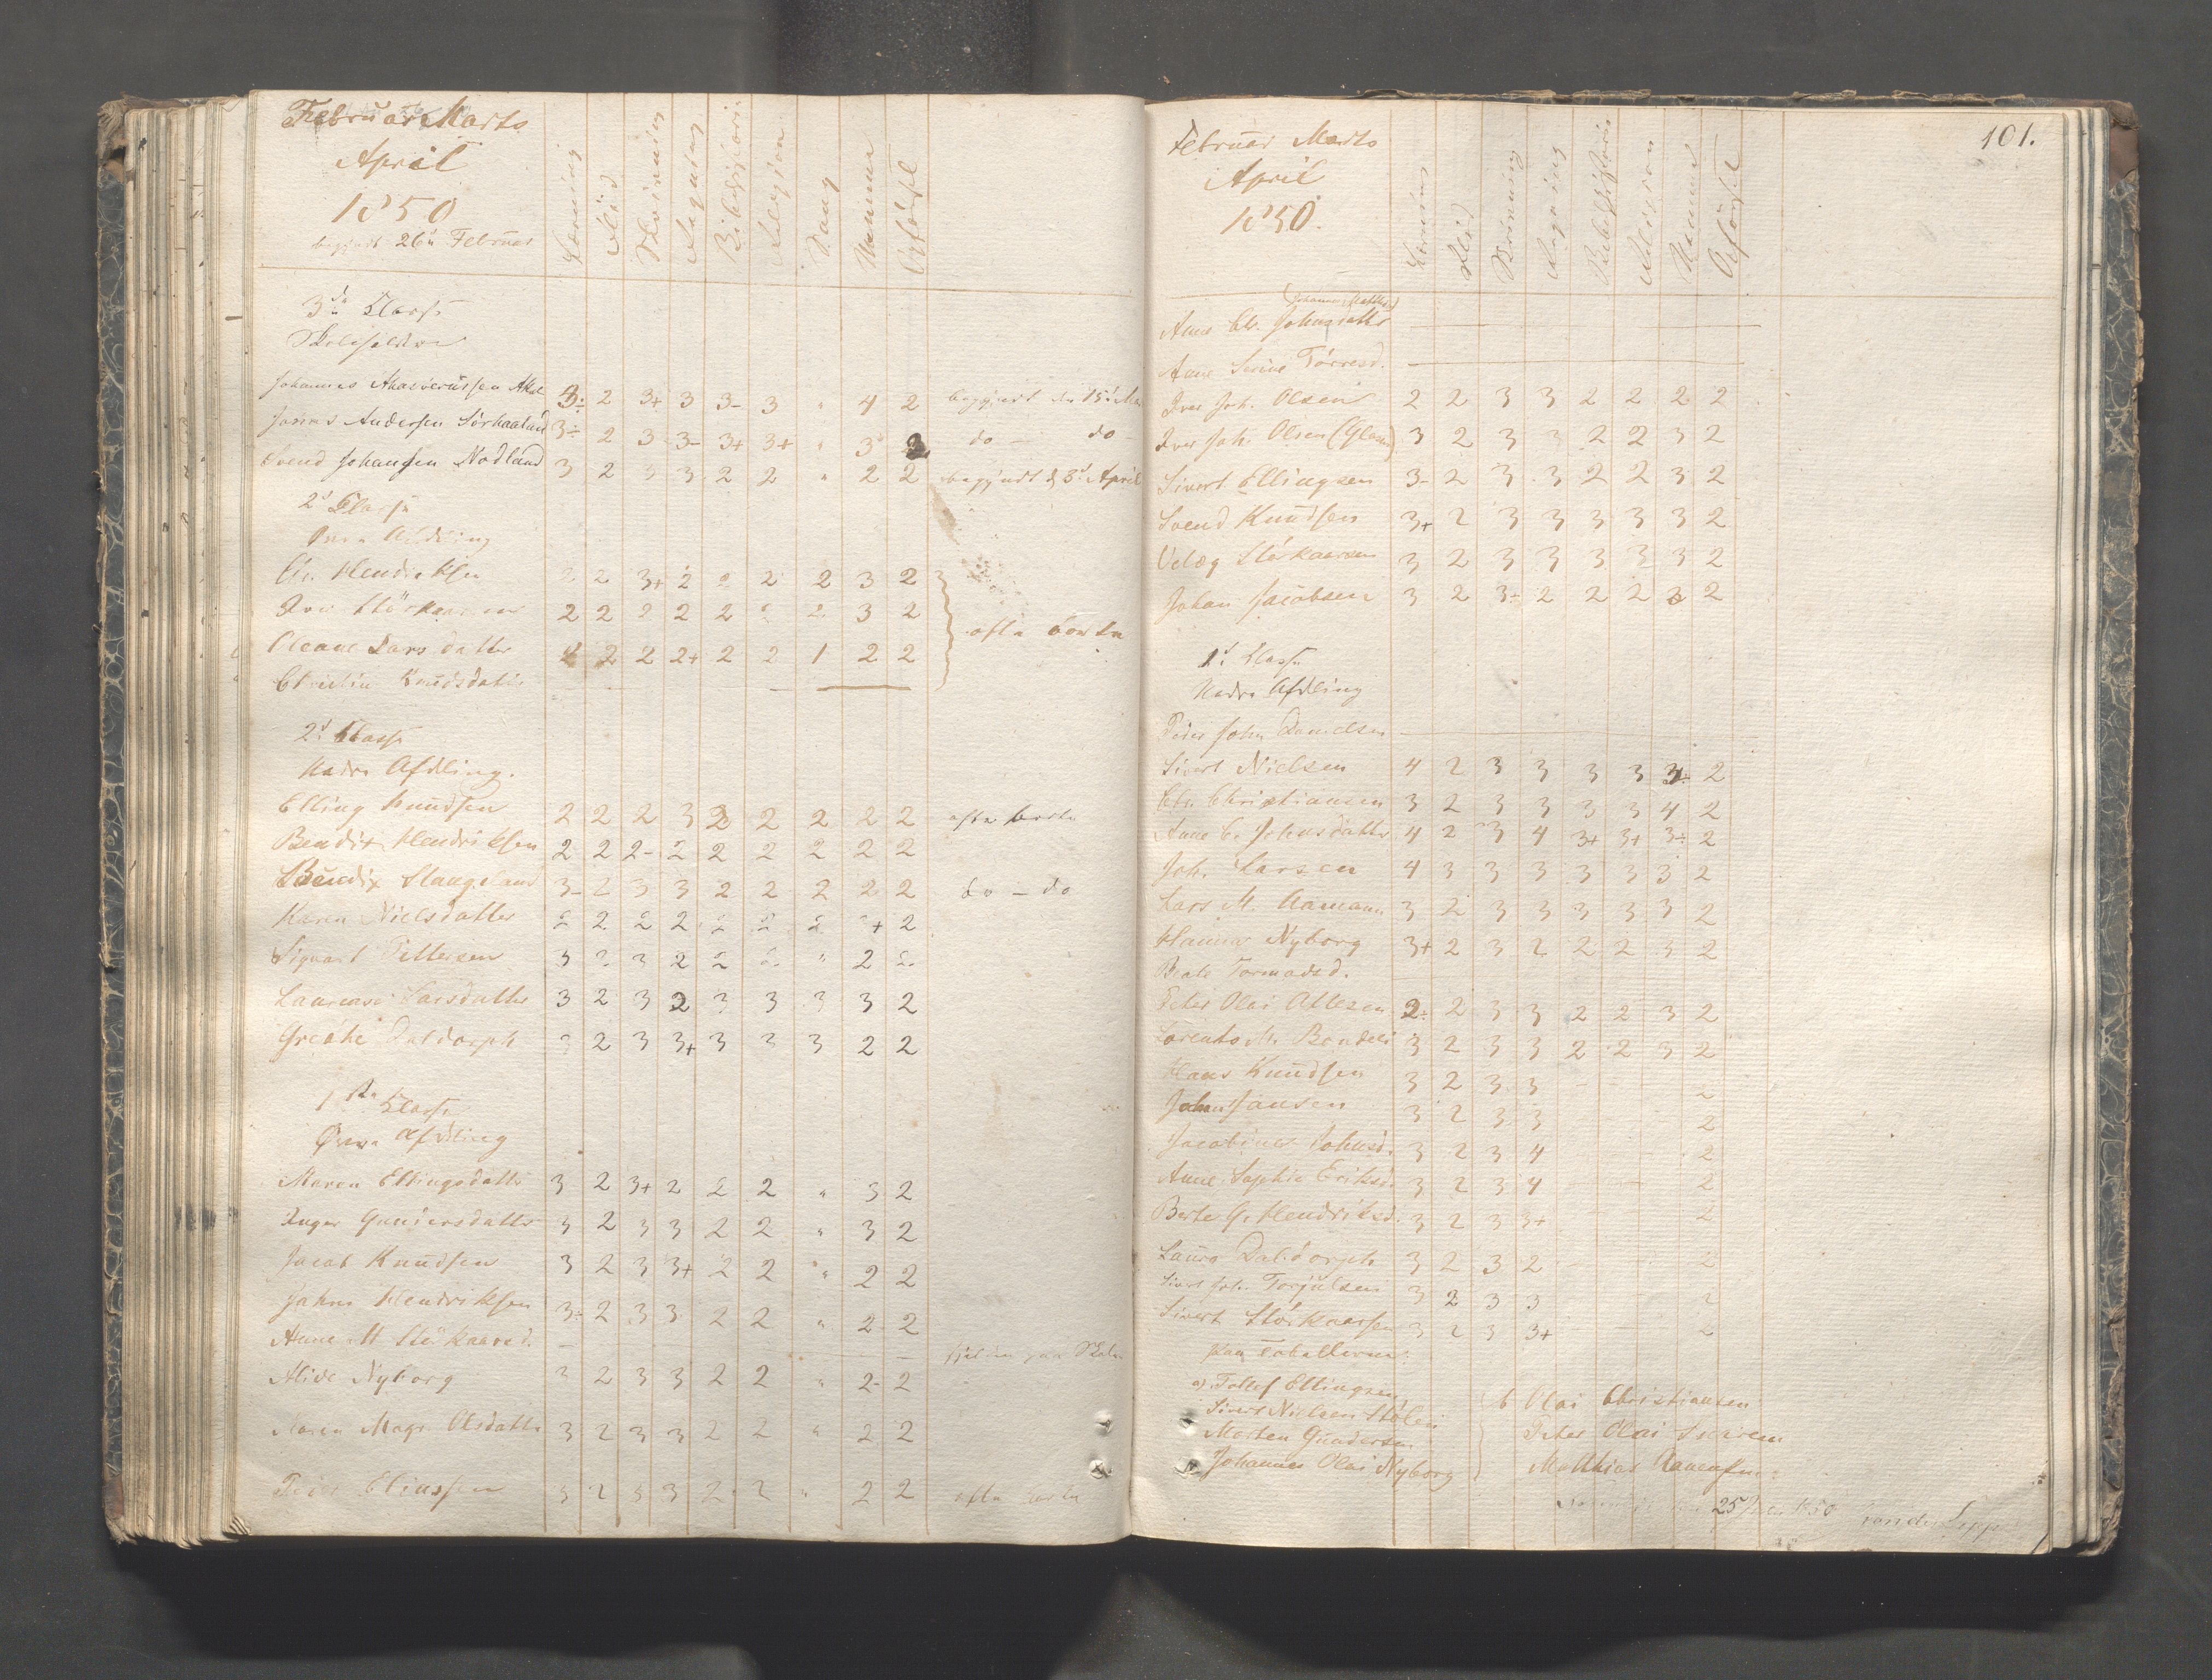 Februar Marts
April
1850
begyndt 26de Februar
Læsning Flid Skrivning Regning Bibelhistorie Religion Sang Nemme Opførsel
3die Classe
Johannes Ahasverussen 3÷ 2 3+ 3 3- 3 " 4 2 begyndt den 15d
Jonas Andersen Sørhaaland 3÷ 2 3 3- 3+ 3+ " 3 2 do - do -
Svend Johansen Nodland 3 2 3 3 2 2 " 2 2 begyndt d 8d April
2d Classe
Øvre Afdeling
Chr. Hendriksen 2 2 3+ 2 2 2 2 3 2
Iver Störkaarsen 2 2 2 2 2 2 2 3 2
ofte borte
Oleane Larsdatter 2 2 2 2+ 2 2 1 2 2
Christine Knudsdatter —
2d Classe
Nedre Afdeling.
Elling Knudsen 2 2 2 3 2 2 2 2 2 ofte borte
Bendix Hendriksen 2 2 2- 2 2 2 2 2 2
Bendix Stangeland 3- 2 3 3 2 2 2 2 2 do - do
Karen Nielsdatter 2 2 2 2 2 2 2 2+ 2
Siqvart Pettersen 3 2 3 2 2 2 " 2 2
Laurense Larsdatter 3 2 3 2 3 3 3 3 2
Greáthe Daldorph 3 2 3 3+ 3 3 3 2 2
1ste Classe
Øvre Afdeling
Maren Ellingsdatter 3 2 3+ 2 2 2 " 3 2
Inger Gundersdatter 3 2 3 3 2 2 " 3 2
Jacob Knudsen 3 2 3 3+ 2 2 " 2 2
Johns Hendriksen 3÷ 2 3 3 2 2 " 2 2
Anne M Störkaarsd. — Skolen
Alide Nyborg 3 2 3 3 2 2 " 2- 2
Maren Magr Olsdatter 3 2 3 3 2 2 " 2 2
Peder Eliassen 3 2 3 3 2 2 " 2 2 ofte borte
101.
Februar Marts
April
1850.
Læsning Flid Skrivning Regning Bibelhistorie Religion Nemme Opførsel
Anne Chr. Johnsdatter —
Anne Serine Tørresd. —
Iver Joh. Olsen 2 2 3 3 2 2 2 2
Iver Joh. Olsen 3 2 3 3 2 2 3 2
Sivert Ellingsen 3- 2 3 3 2 2 3 2
Svend Knudsen 3+ 2 3 3 3 3 3 2
Velæg Störkaarsen 3 2 3 3 3 3 3 2
Johan Jacobsen 3 2 3- 2 2 2 3 2
1d Classe
Nedre Afdeling
Peder John Danielsen —
Sivert Nielsen 4 2 3 3 3 3 3- 2
Chr. Christiansen 3 2 3 3 3 3 4 2
Anne C. Johnsdatter 4 2 3 4 3+ 3+ 3÷ 2
Joh. Larsen 4 3 3 3 3 3 3 2
Lars M. Aamann 3 2 3 3 3 3 3 2
Hanna Nyborg 3+ 2 3 2 2 2 3 2
Beate Tormodsd.
Peter Olai Attesen 2÷ 2 3 3 2 2 3 2
Lorents M. Bendix 3 2 3 3 2 2 3 2
Hans Knudsen 3 2 3 3 - - 2
John Jansen 3 2 3 3 2
Jacobine Johnsd. 3 2 3 4 2
Anne Sophie Eriksd. 3 2 3 4 2
Berte G. Hendriksd. 3 2 3 3+ 2
Laura Daldorph 3 2 3 2 2
Sivert Joh. Torjulsen 3 2 3 3 2
Sivert Störkaarsen 3 2 3 3+ 2
paa Tabellerne:
a) Tollef Ellingsen
Sivert Nielsen Stölen
Morten Gundersen
Johannes Olai Nyborg
b Olai Christiansen
Peter Olai
Mathias
25